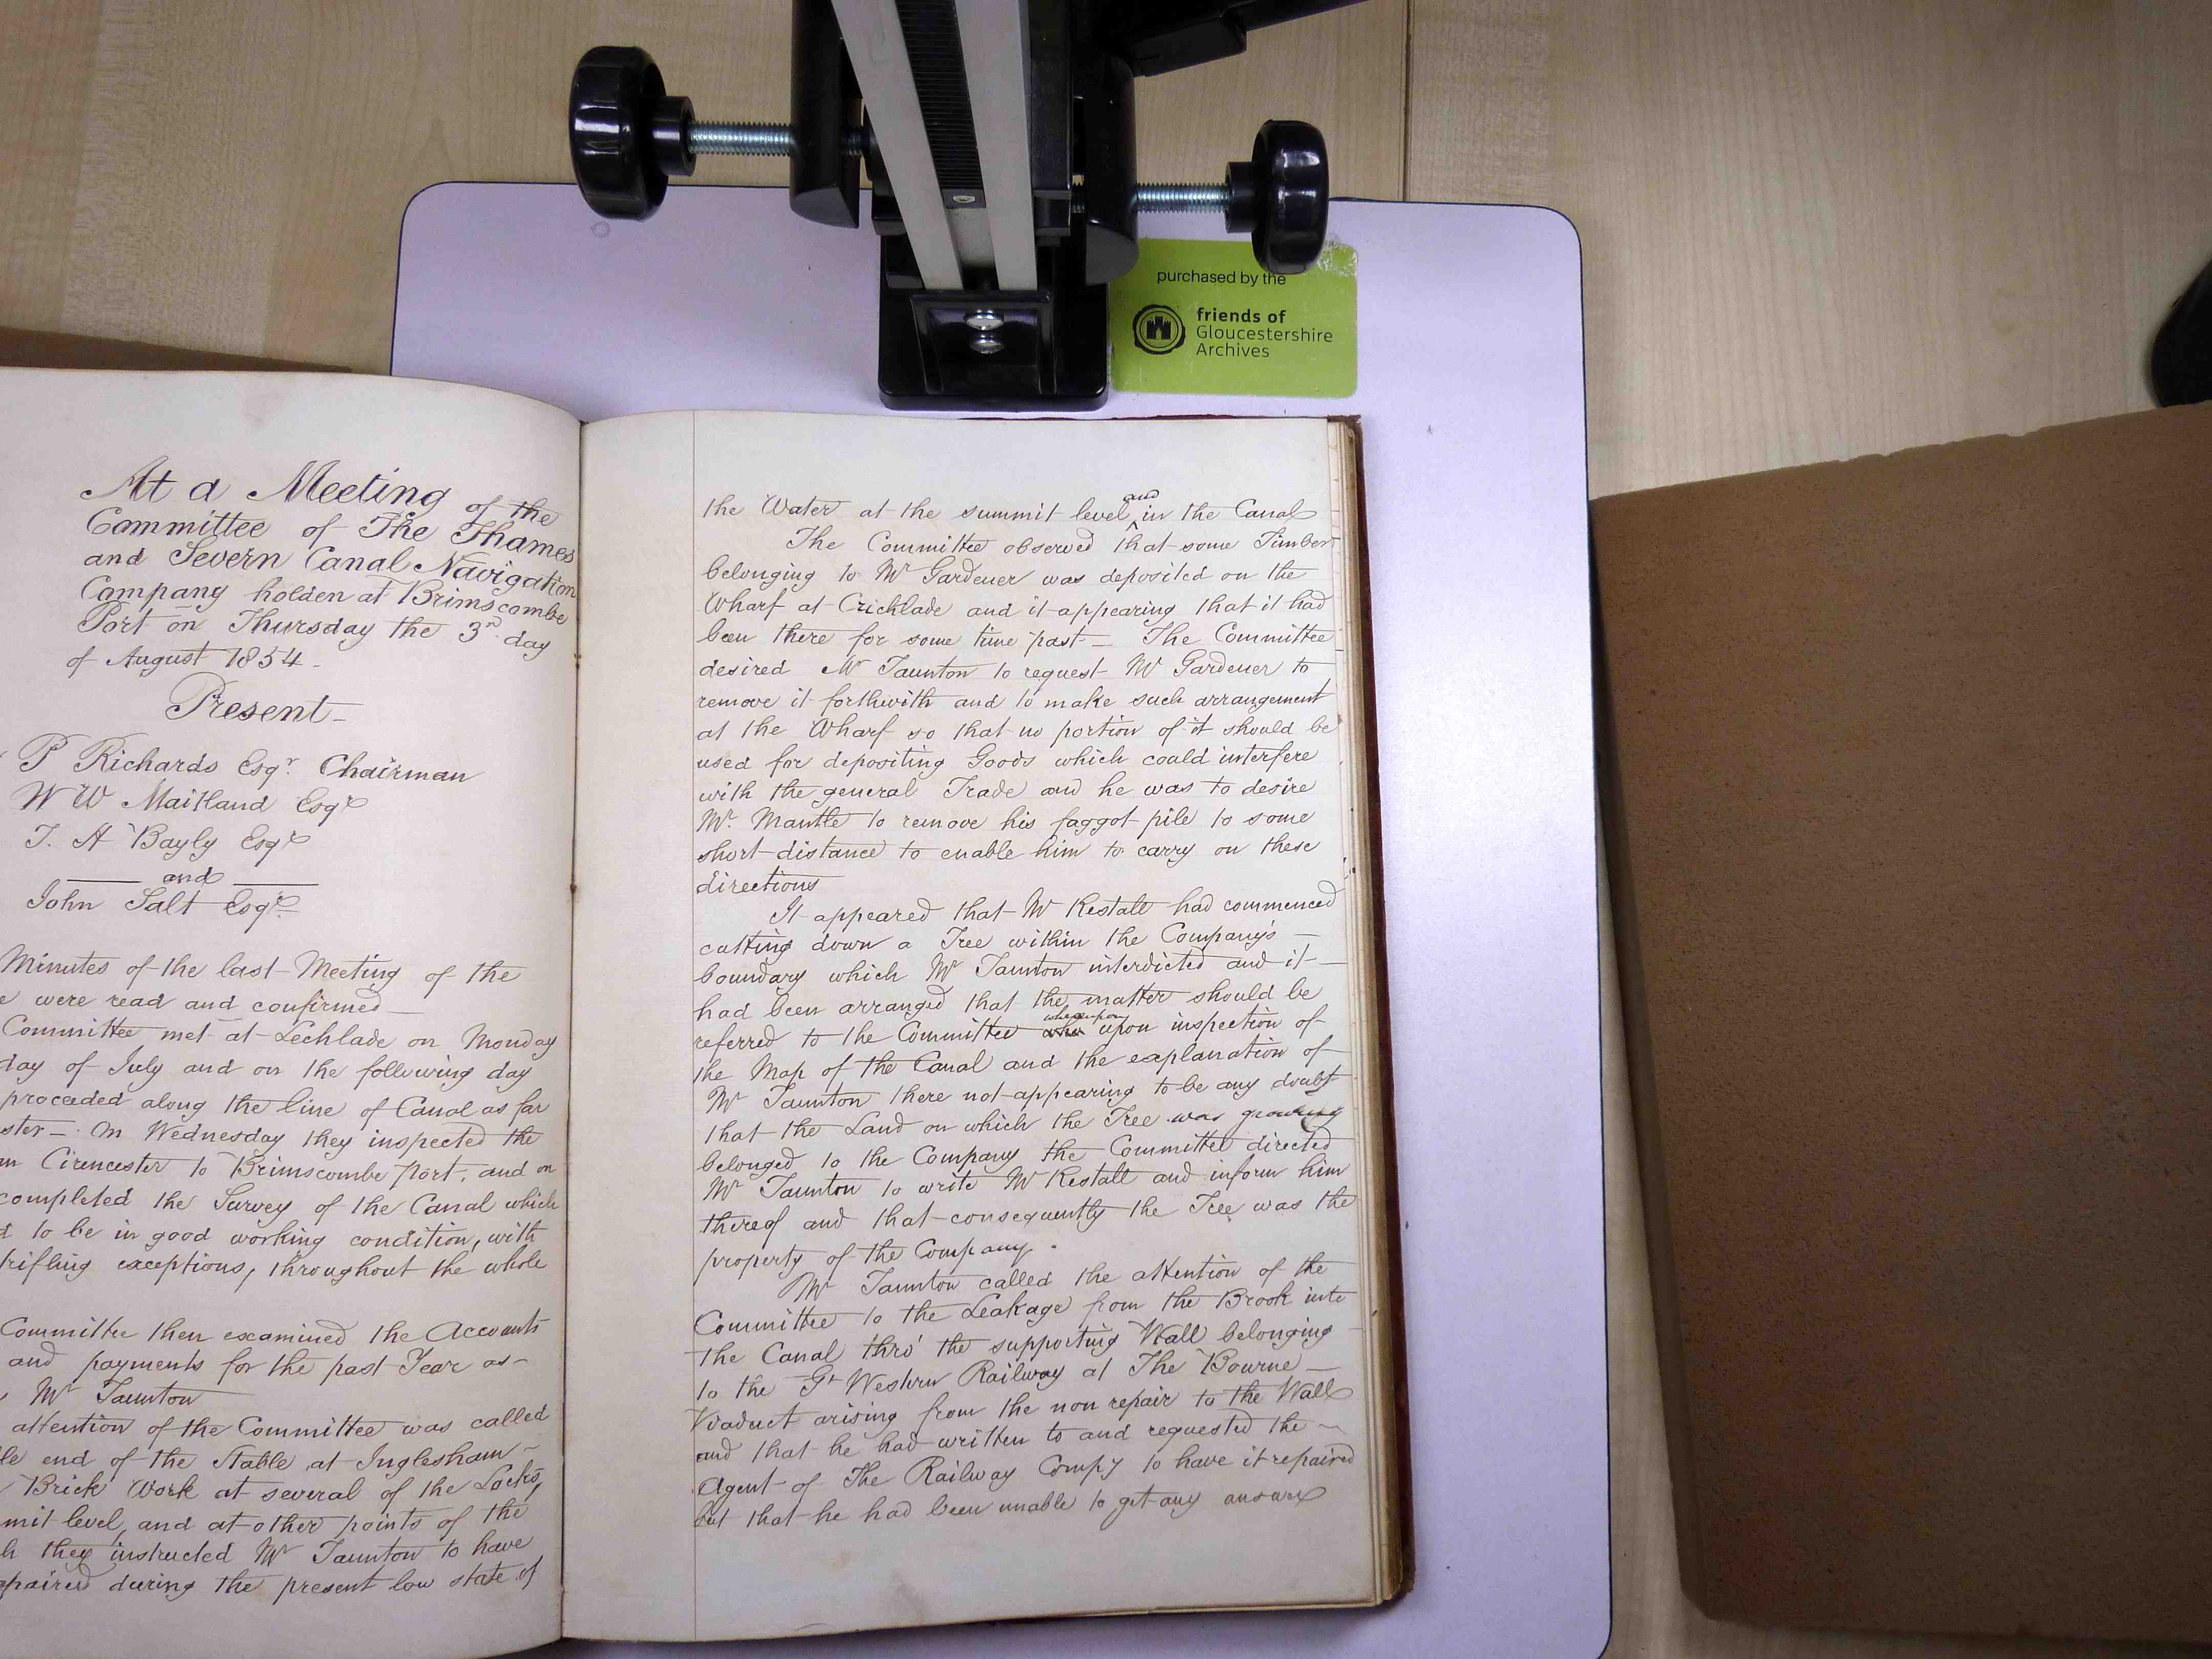 purchased by the
friends of
Gloucestershire
Archives
At a Meeting of the
Committee of The Thames
and Severn Canal Navigation
Company holden at Brimscombe
Port on Thursday the 3rd day
of August 1854
Present
P Richards Esqr. Chairman
W W Maitland Esqre
T. H Bayly Esqre
and
John Salt Esqre
Minutes of the last Meeting of the
were read and confirmed
Committee met at Lechlade on Monday
day of July and on the following day
proceeded along the line of Canal as far
ster On Wednesday they inspected the
Cirencester to Brimscombe Port, and on
completed the Survey of the Canal which
to be in good working condition, with
rifling exceptions, throughout the whole
Committee then examined the Accounts
and payments for the past Year as
Mr Taunton
attention of the Committee was called
end of the Stable at Inglesham
Brick Work at several of the Locks,
mit level, and at other points of the
h they instructed Mr Taunton to have
paired during the present low state of
the Water at the summit level and in the Canal
The Committee observed that some Timber
belonging to Mr Gardener was deposited on the
Wharf at Cricklade and it appearing that it had
been there for some time past — The Committee
desired Mr Taunton to request Mr Gardener to
remove it forthwith and to make such arrangement
at the Wharf so that no portion of it should be
used for depositing Goods which could interfere
with the general Trade and he was to desire
Mr. Mantle to remove his faggot pile to some
short distance to enable him to carry on these
directions
It appeared that Mr Restall had commenced
cutting down a Tree within the Company's —
boundary which Mr Taunton interdicted and it —
had been arranged that the matter should be
referred to the Committee whereupon upon inspection of
the Map of the Canal and the explanation of
Mr Taunton there not appearing to be any doubt
that the Land on which the Tree was growing
belonged to the Company the Committee directed
Mr Taunton to write Mr Restall and inform him
thereof and that consequently the Tree was the
property of the Company.
Mr Taunton called the attention of the
Committee to the Leakage from the Brook into
the Canal thro' the supporting Wall belonging
to the Gt Western Railway at The Bourne —
Viaduct arising from the non repair to the Wall
and that he had written to and requested the
Agent of The Railway Compy to have it repaired
but that he had been unable to get any answer